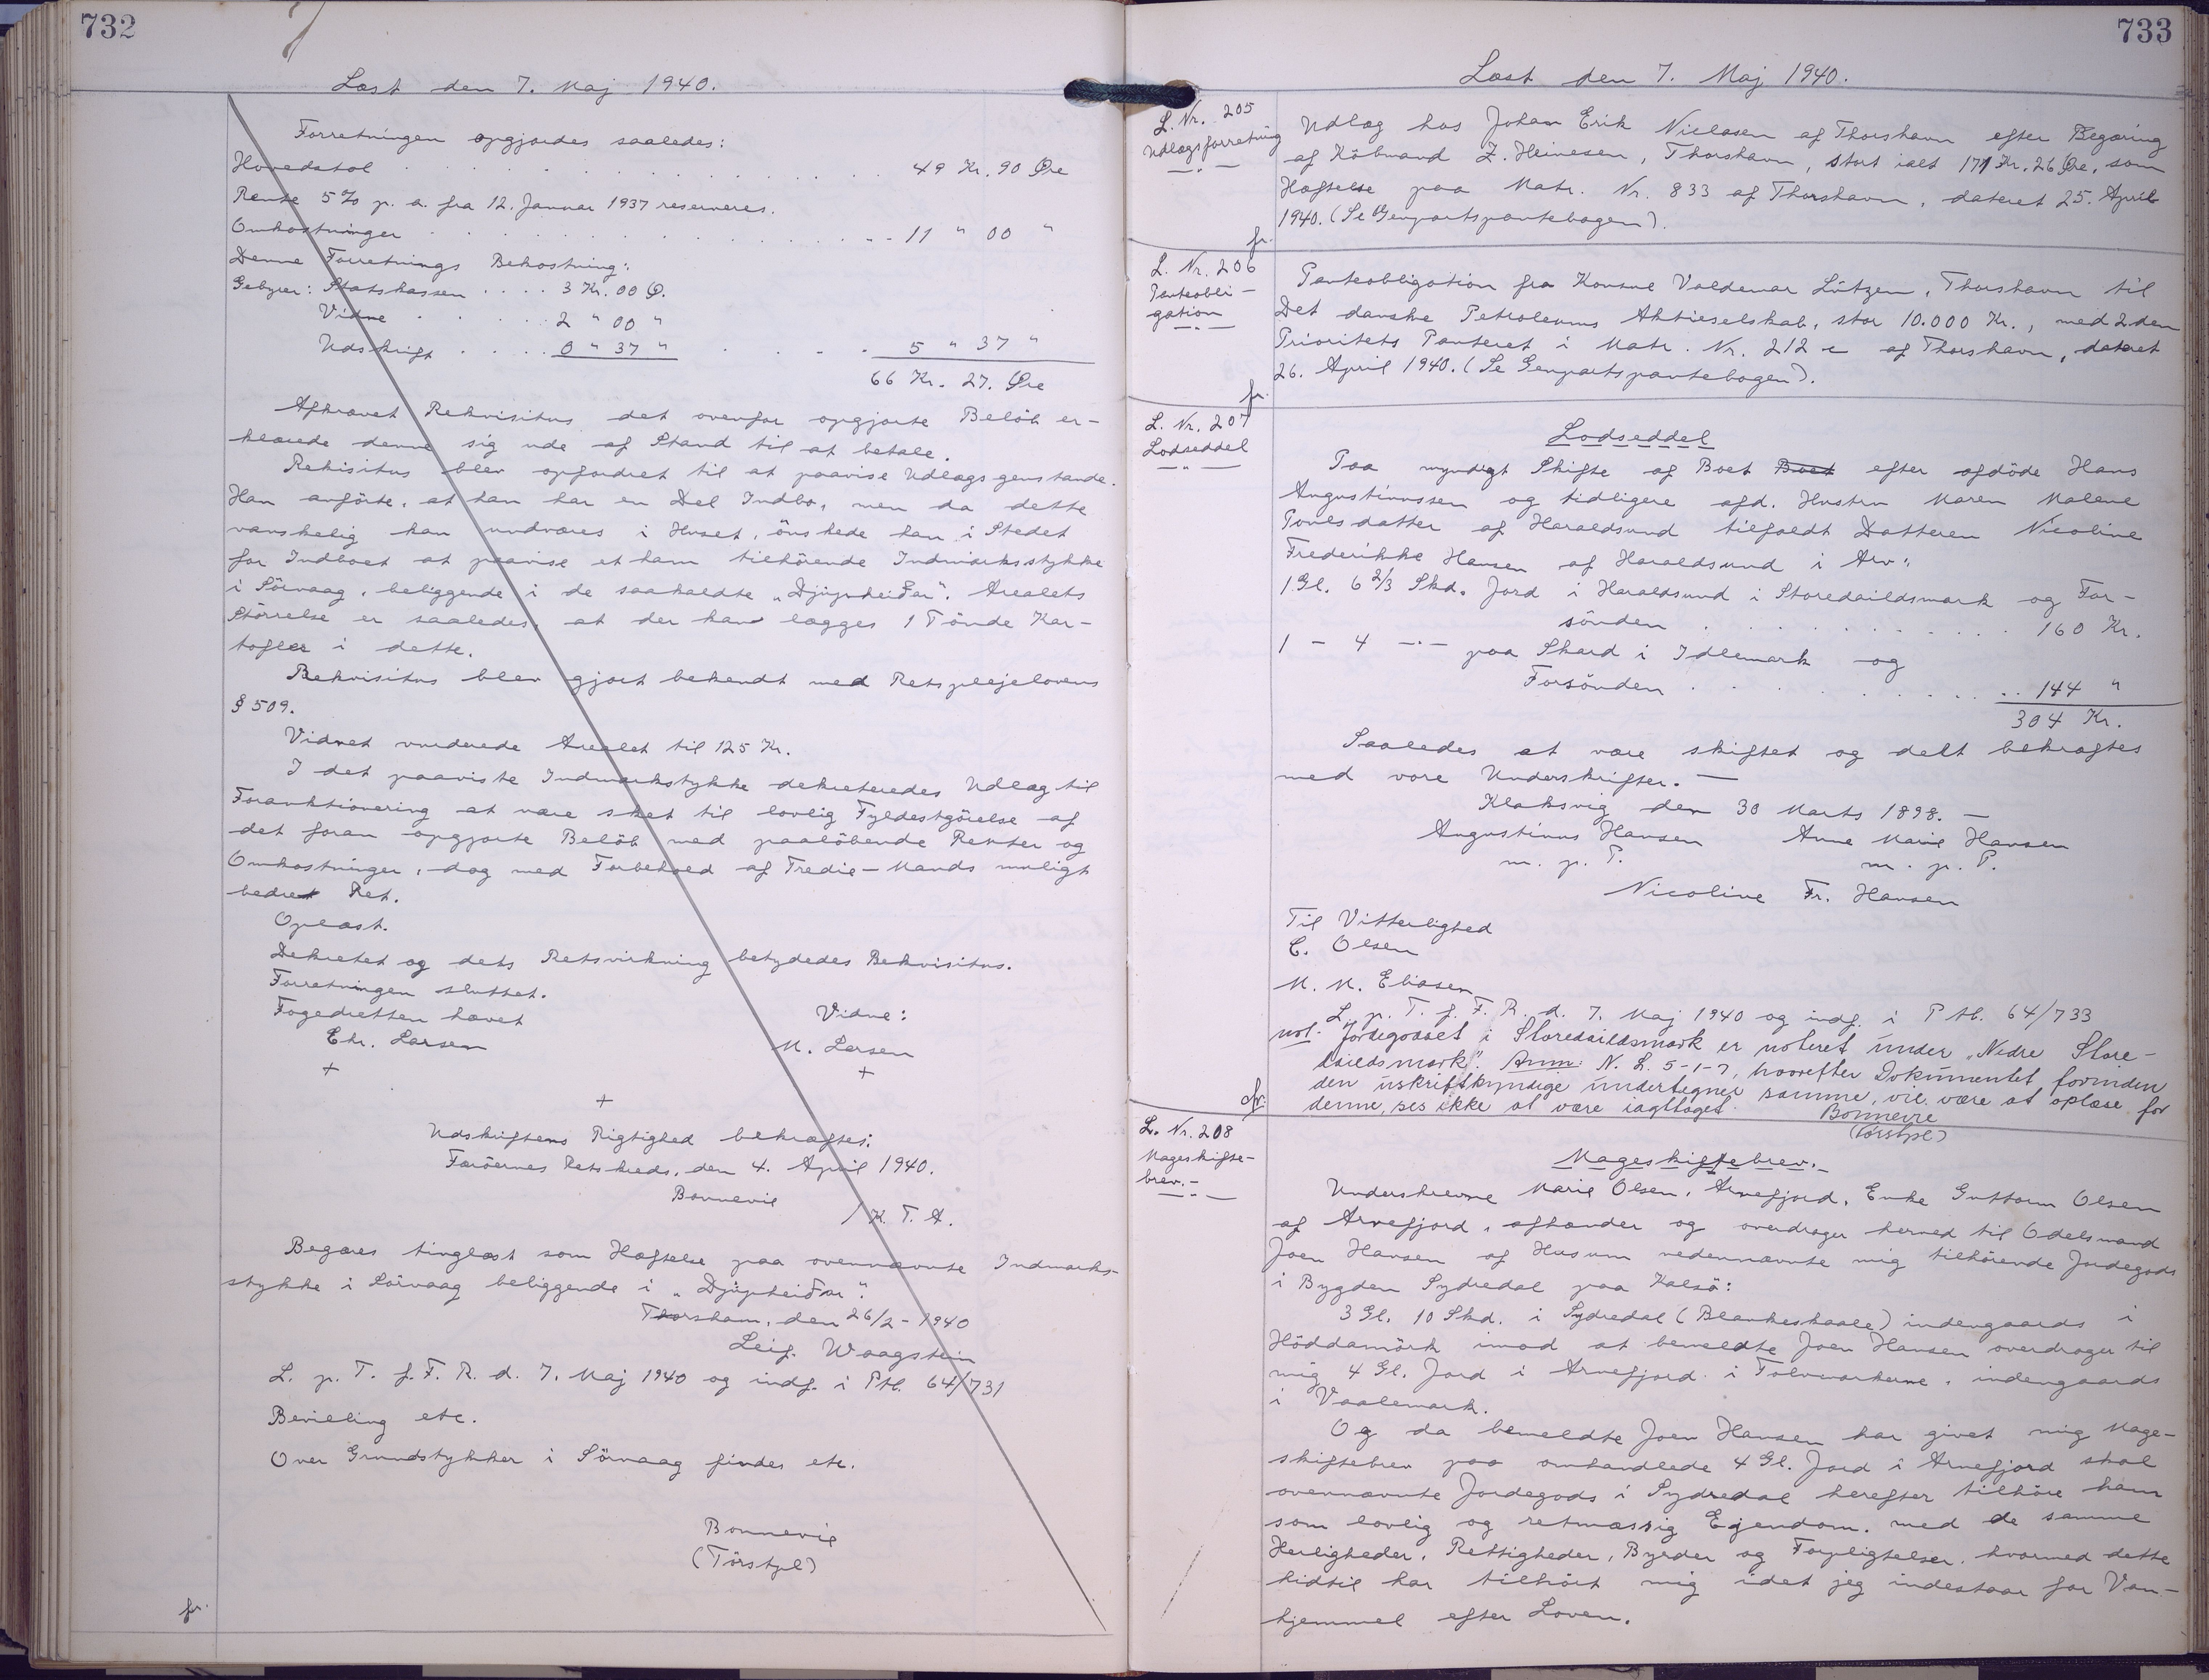 732
Læst den 7. Maj 1940.
Forretningen opgjordes saaledes:
Hovedstol . . . . . . . . . . 49 Kr. 90 Øre
Rente 5% p. a. fra 12. Januar 1937 reserveres.
Omkostninger . . . . . . . . . . 11 " 00 "
Denne Forretnings Bekostning:
Gebyrer: Statskassen . . . . 3 Kr. 00 Ø.
Vidne . . . . . 2 " 00 "
Udskrift . . . . 0 " 37 " . . . . 5 " 37 "
66 Kr. 27. Øre
Afkrævet Rekvisitus det ovenfor opgjorte Beløb er-
klærede denne sig ude af Stand til at betale.
Rekisitus blev opfordret til at paavise Udlagsgenstande.
Han anførte, at han har en Del Indbo, men da dette
vanskelig kan undværes i Huset, önskede han i Stedet
for Indboet at paavise et ham tilhörende Indmarksstykke
i Sörvaag, beliggende i de saakaldte „Djúpheiðar". Arealets
Störrelse er saaledes, at der kan lægges 1 Tönde Kar-
tofler i dette.
Rekvisitus blev gjort bekendt med Retsplejelovens
§ 509.
Vidnet vurderede Arealet til 125 Kr.
I det paaviste Indmarkstykke dekreteredes Udlæg til
Foranktionering at være sket til lovlig Fyldestgörelse af
det foran opgjorte Belöb med paalöbende Renter og
Omkostninger, dog med Forbehold af Tredie-Mands muligt
bedret Ret.
Oplæst.
Dekretet og dets Retsvirkning betydedes Rekvisitus.
Forretningen sluttet.
Fogedretten hævet
Vidne:
Chr. Larsen
M. Larsen
+
+
+
Udskriftens Rigtighed bekræftes:
Færöernes Retskreds, den 4. April 1940.
Bonnevie
/ K. T. A.
Begæres tinglæst som Hæftelse paa ovennævnte Indmarks-
stykke i Sörvaag beliggende i „Djúpheiðar".
Thorshavn, den 26/2-1940
Leif. Waagstein
L. p. T. f. F. R. d. 7. Maj 1940 og indf. i Ptb. 64/731
Bevilling etc.
Over Grundstykker i Sörvaag findes etc.
Bonnevie
(Törstpl)
fr.
733
Læst den 7. Maj 1940.
L. Nr. 205
Udlægsforretning
Udlæg hos Johan Erik Niclasen af Thorshavn efter Begæring
af Köbmand Z. Heinesen, Thorshavn, stort ialt 171 Kr. 26 Øre, som
Hæftelse paa Matr. Nr. 833 af Thorshavn, dateret 25. April
1940. (Se Genpartspantebogen).
fr.
L. Nr. 206
Panteobli-
gation
Panteobligation fra Konsul Valdemar Lützen, Thorshavn til
Det danske Petroleums Aktieselskab, stor 10.000 Kr., med 2den
Prioritets Panteret i Matr. Nr. 212 e af Thorshavn, dateret
26. April 1940. (Se Genpartspantebogen).
fr.
L. Nr. 207
Lodseddel
Lodseddel
Paa myndigt Skifte af Boet Boet efter afdöde Hans
Augustinussen og tidligere afd. Hustru Maren Malene
Poulsdatter af Haraldsund tilfaldt Datteren Nicoline
Frederikke Hansen af Haraldsund i Arv:
1 Gl. 6 2/3 Skd. Jord i Haraldsund i Storedaildsmark og For-
sönden . . . . . . . . . . 160 Kr.
1 - 4 -·- paa Skard i Idlemark og
Forsönden . . . . . . . . . . 144 "
304 Kr.
Saaledes at være skiftet og delt bekræftes
med vore Underskrifter. —
Klaksvig den 30 Marts 1898. —
Augustinus Hansen Anne Marie Hansen
m. p. P. m. p. P.
Nicoline Fr. Hansen
Til Vitterlighed
C. Olsen
M. M. Eliasen
L. p. T. f. F. R. d. 7. Maj 1940 og indf. i Ptb. 64/733
not. Jordegodset i Storedaildsmark er noteret under „Nedre Store-
daildsmark". Anm: N. L. 5-1-7, hvorefter Dokumentet, forinden
den uskriftkyndige undertegner samme, vil være at oplæse for
denne, ses ikke at være iagttaget.
Bonnevie
(Törstpl)
fr.
L. Nr. 208
Mageskifte-
brev.-
Mageskiftebrev.-
Underskrevne Marie Olsen, Arnefjord, Enke Guttorm Olsen
af Arnefjord, afhænder og overdrager herved til Odelsmand
Joen Hansen af Husum nedennævnte mig tilhörende Jordegods
i Bygden Sydredal paa Kalsö:
3 Gl. 10 Skd. i Sydredal (Blankeskaale) indengaards i
Höddamörk imod at bemeldte Joen Hansen overdrager til
mig 4 Gl. Jord i Arnefjord i Tolvmarkerne, indengaards
i Vaalemark.
Og da bemeldte Joen Hansen har givet mig Mage-
skiftebrev paa omhandlede 4 Gl. Jord i Arnefjord skal
ovennævnte Jordegods i Sydredal herefter tilhöre ham
som lovlig og retmæssig Ejendom, med de samme
Herligheder, Rettigheder, Byrder og Forpligtelser, hvormed dette
hidtil har tilhört mig idet jeg indestaar for Van-
hjemmel efter Loven.